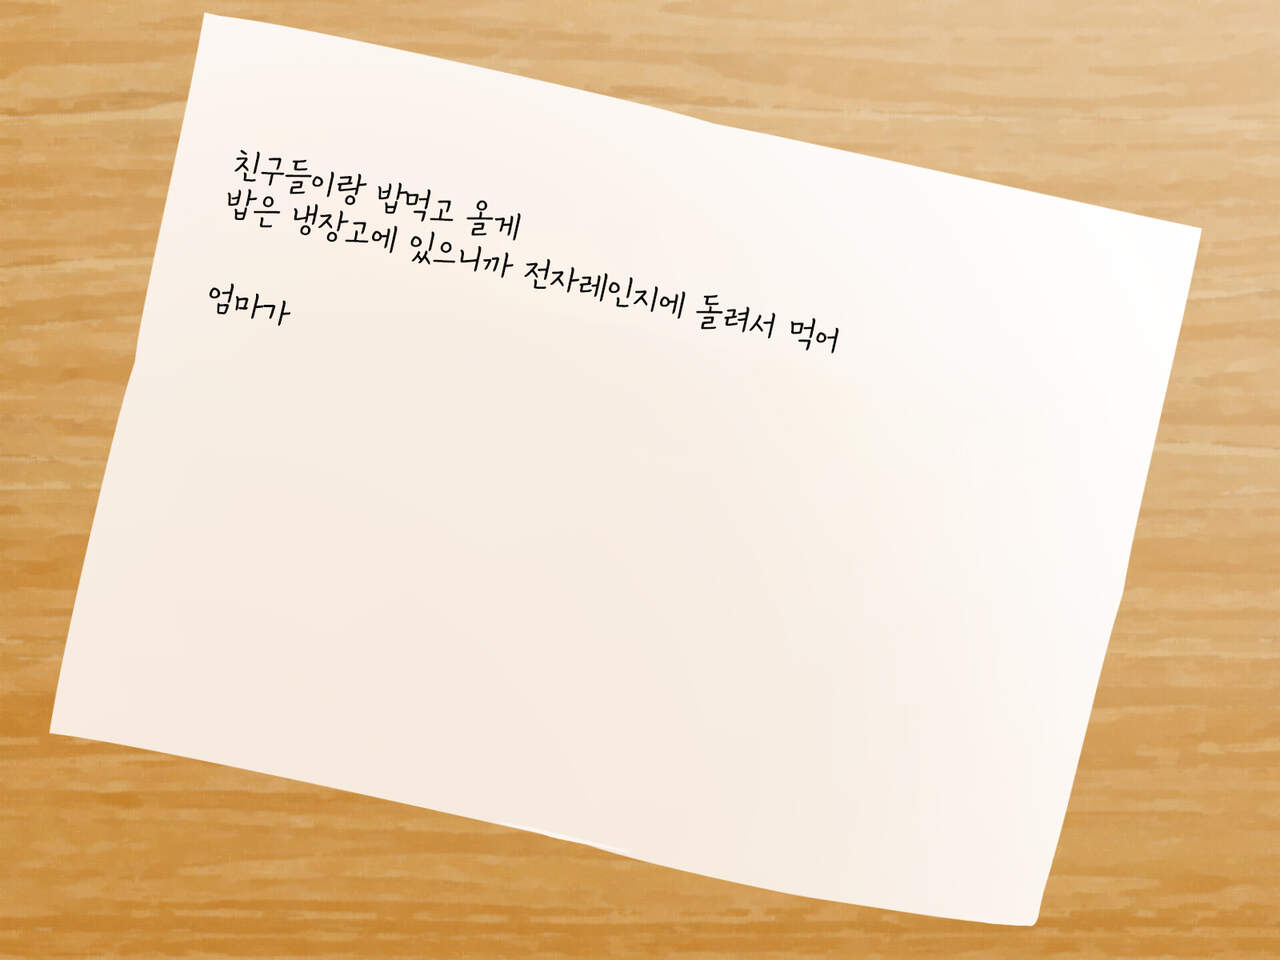 친구들이랑 밥먹고 올게
밥은 냉장고에 있으니까 전자레인지에 돌려서 먹어
엄마가